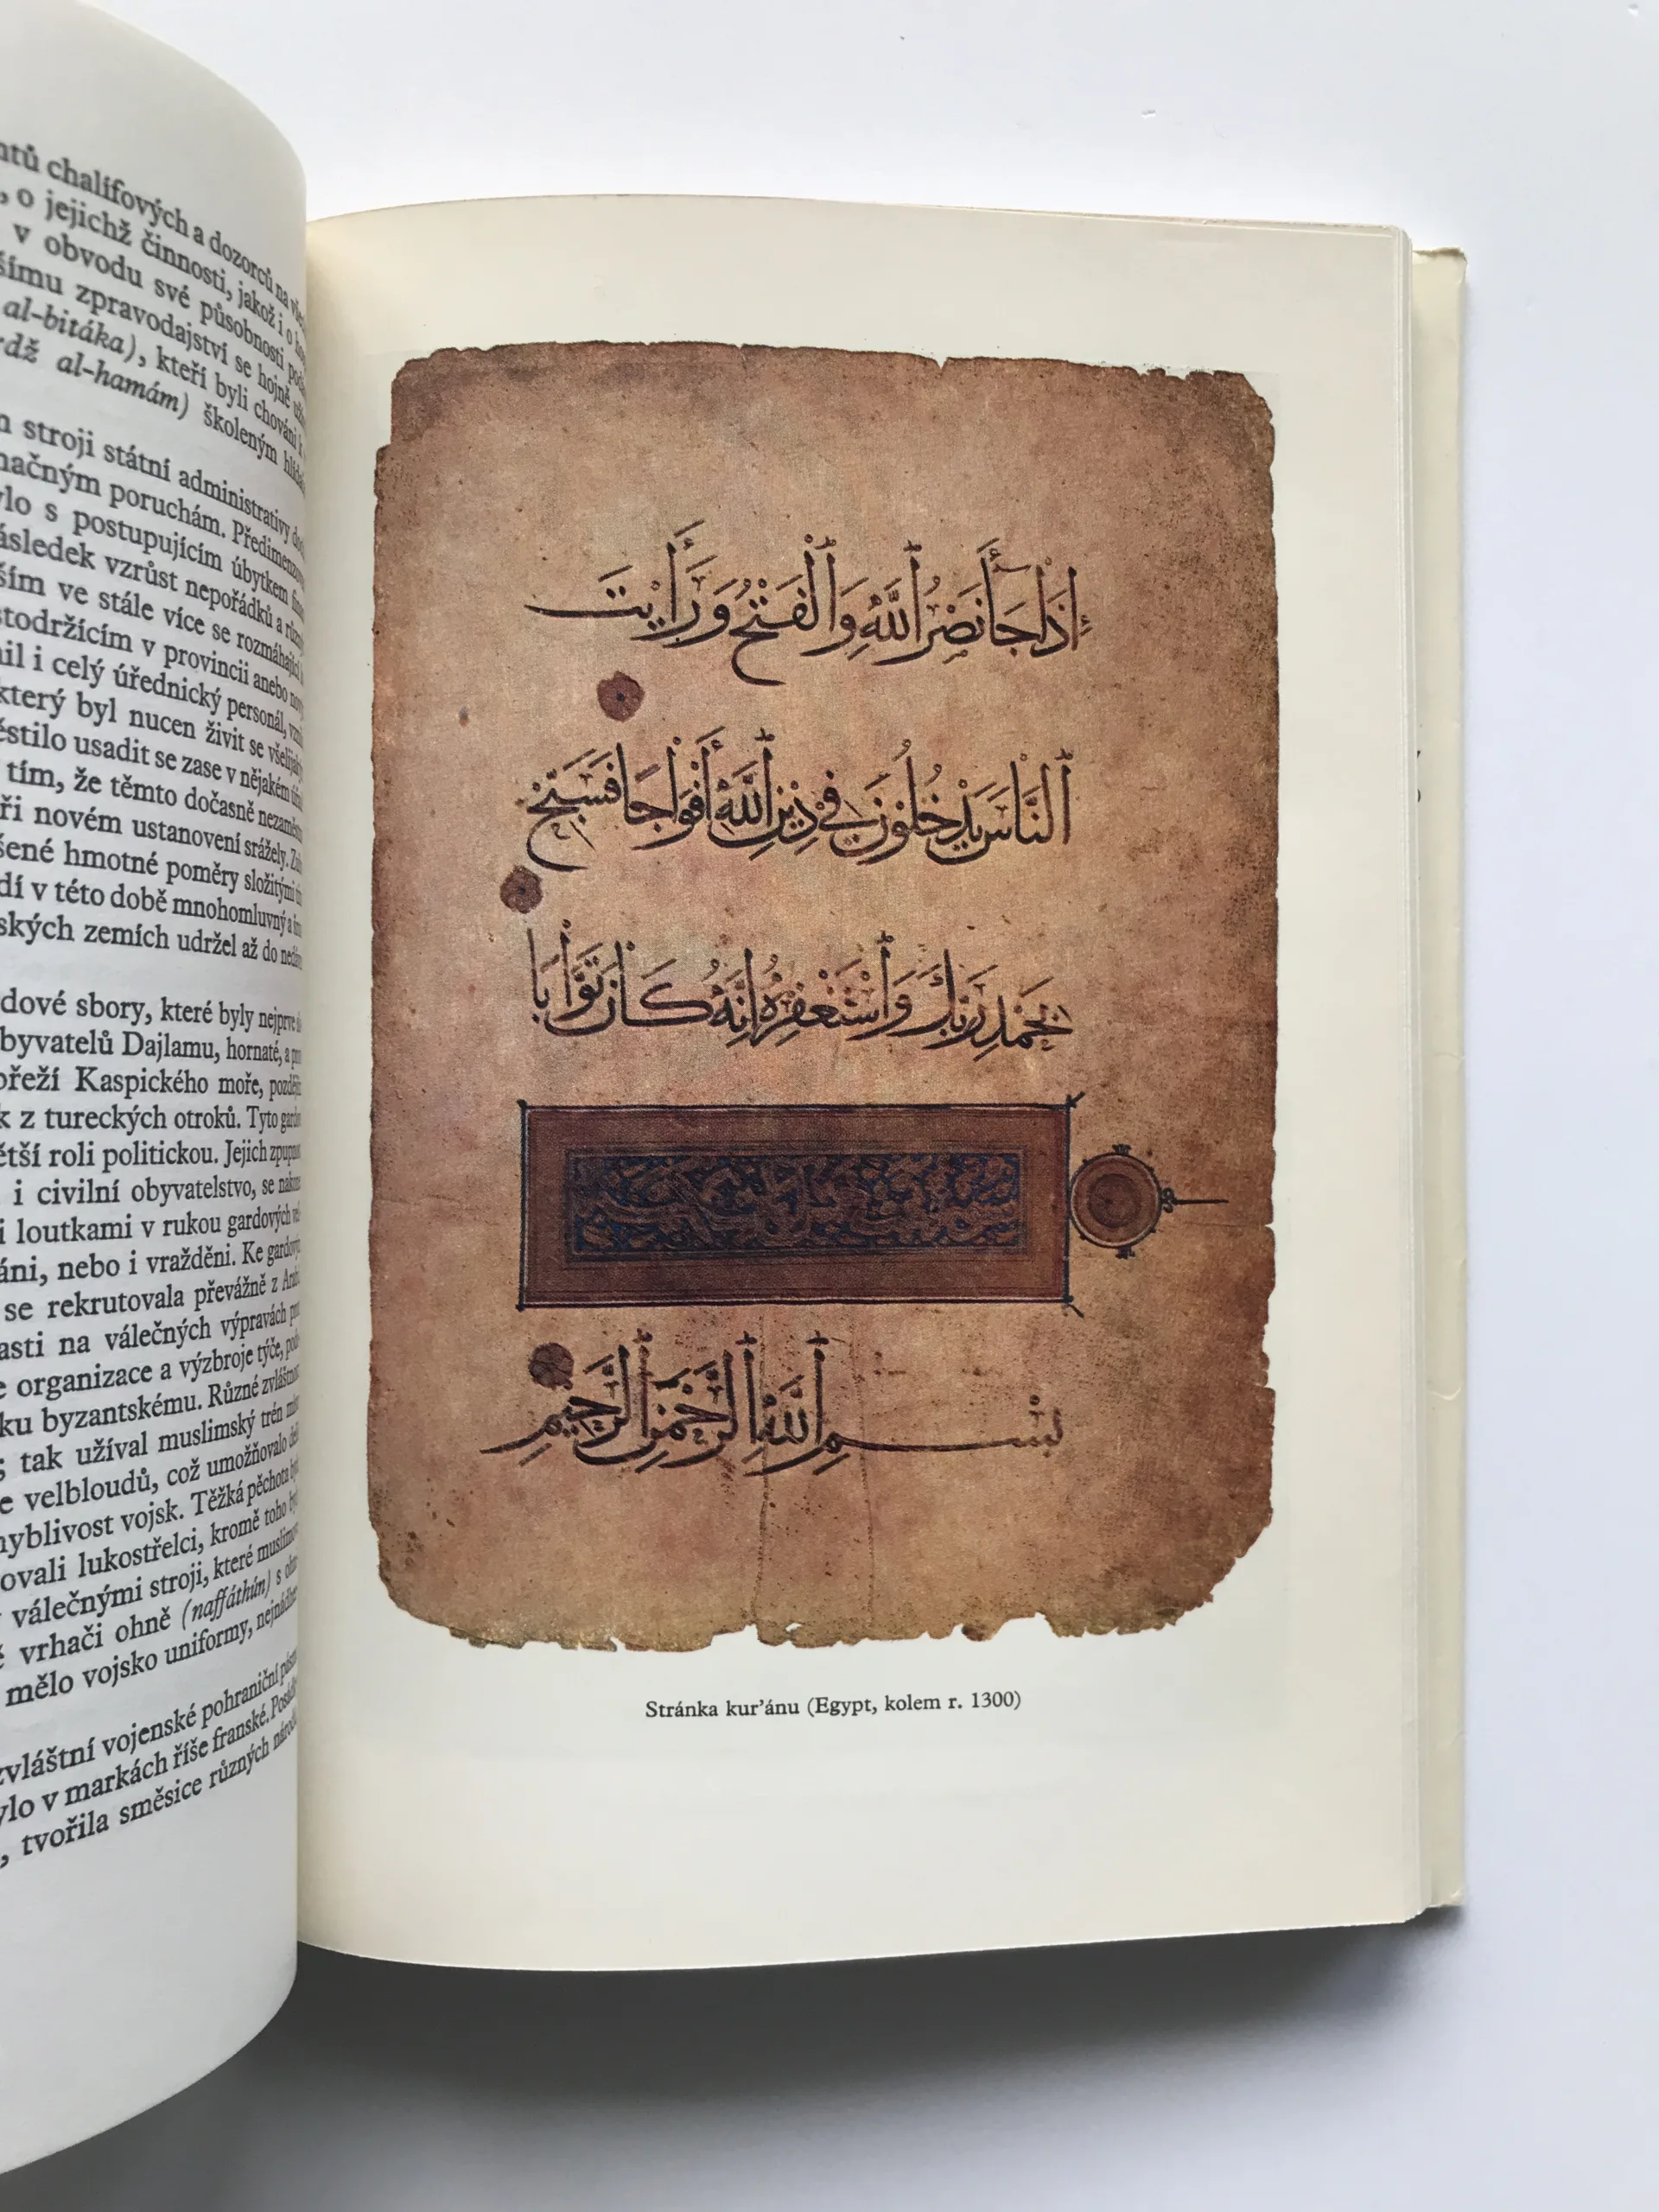 ntů chalífových a dozorců na
, o jejichž činnosti, jakož i o
v obvodu své působnosti
šímu zpravodajství se hojně
al-bitáka), kteří byli chováni k
rdž al-hamám) školeným
n stroji státní administrativy
načným poruchám.
ylo s postupujícím úbytkem
ásledek vzrůst nepořádků a
ším ve stále více se rozmáhající
stodržícím v provincii anebo
nil i celý úřednický personál,
který byl nucen živit se
ěstilo usadit se zase v nějakém
tím, že těmto dočasně
ři novém ustanovení srážely.
šené hmotné poměry složitými
dí v této době mnohomluvný a
ských zemích udržel až do
dové sbory, které byly nejprve
byvatelů Dajlamu, hornaté, a
břeží Kaspického moře,
k z tureckých otroků. Tyto
ětší roli politickou. Jejich
i civilní obyvatelstvo, se
i loutkami v rukou gardových
áni, nebo i vražděni. Ke
se rekrutovala převážně z
asti na válečných výpravách
e organizace a výzbroje týče,
ku byzantskému. Různé
; tak užíval muslimský trén
e velbloudů, což umožňovalo
hyblivost vojsk. Těžká pěchota
ovali lukostřelci, kromě toho
válečnými stroji, které
é vrhači ohně (naffáthún) s
mělo vojsko uniformy,
zvláštní vojenské pohraniční
ylo v markách říše franské.
, tvořila směsice různých
إِذَا جَآءَ نَصْرُ ٱللَّهِ وَٱلْفَتْحُ وَرَأَيْتَ
ٱلنَّاسَ يَدْخُلُونَ فِي دِينِ ٱللَّهِ أَفْوَاجًا فَسَبِّحْ
بِحَمْدِ رَبِّكَ وَٱسْتَغْفِرْهُ إِنَّهُ كَانَ تَوَّابًا
بِسْمِ ٱللَّهِ ٱلرَّحْمَنِ ٱلرَّحِيمِ
Stránka kur’ánu (Egypt, kolem r. 1300)